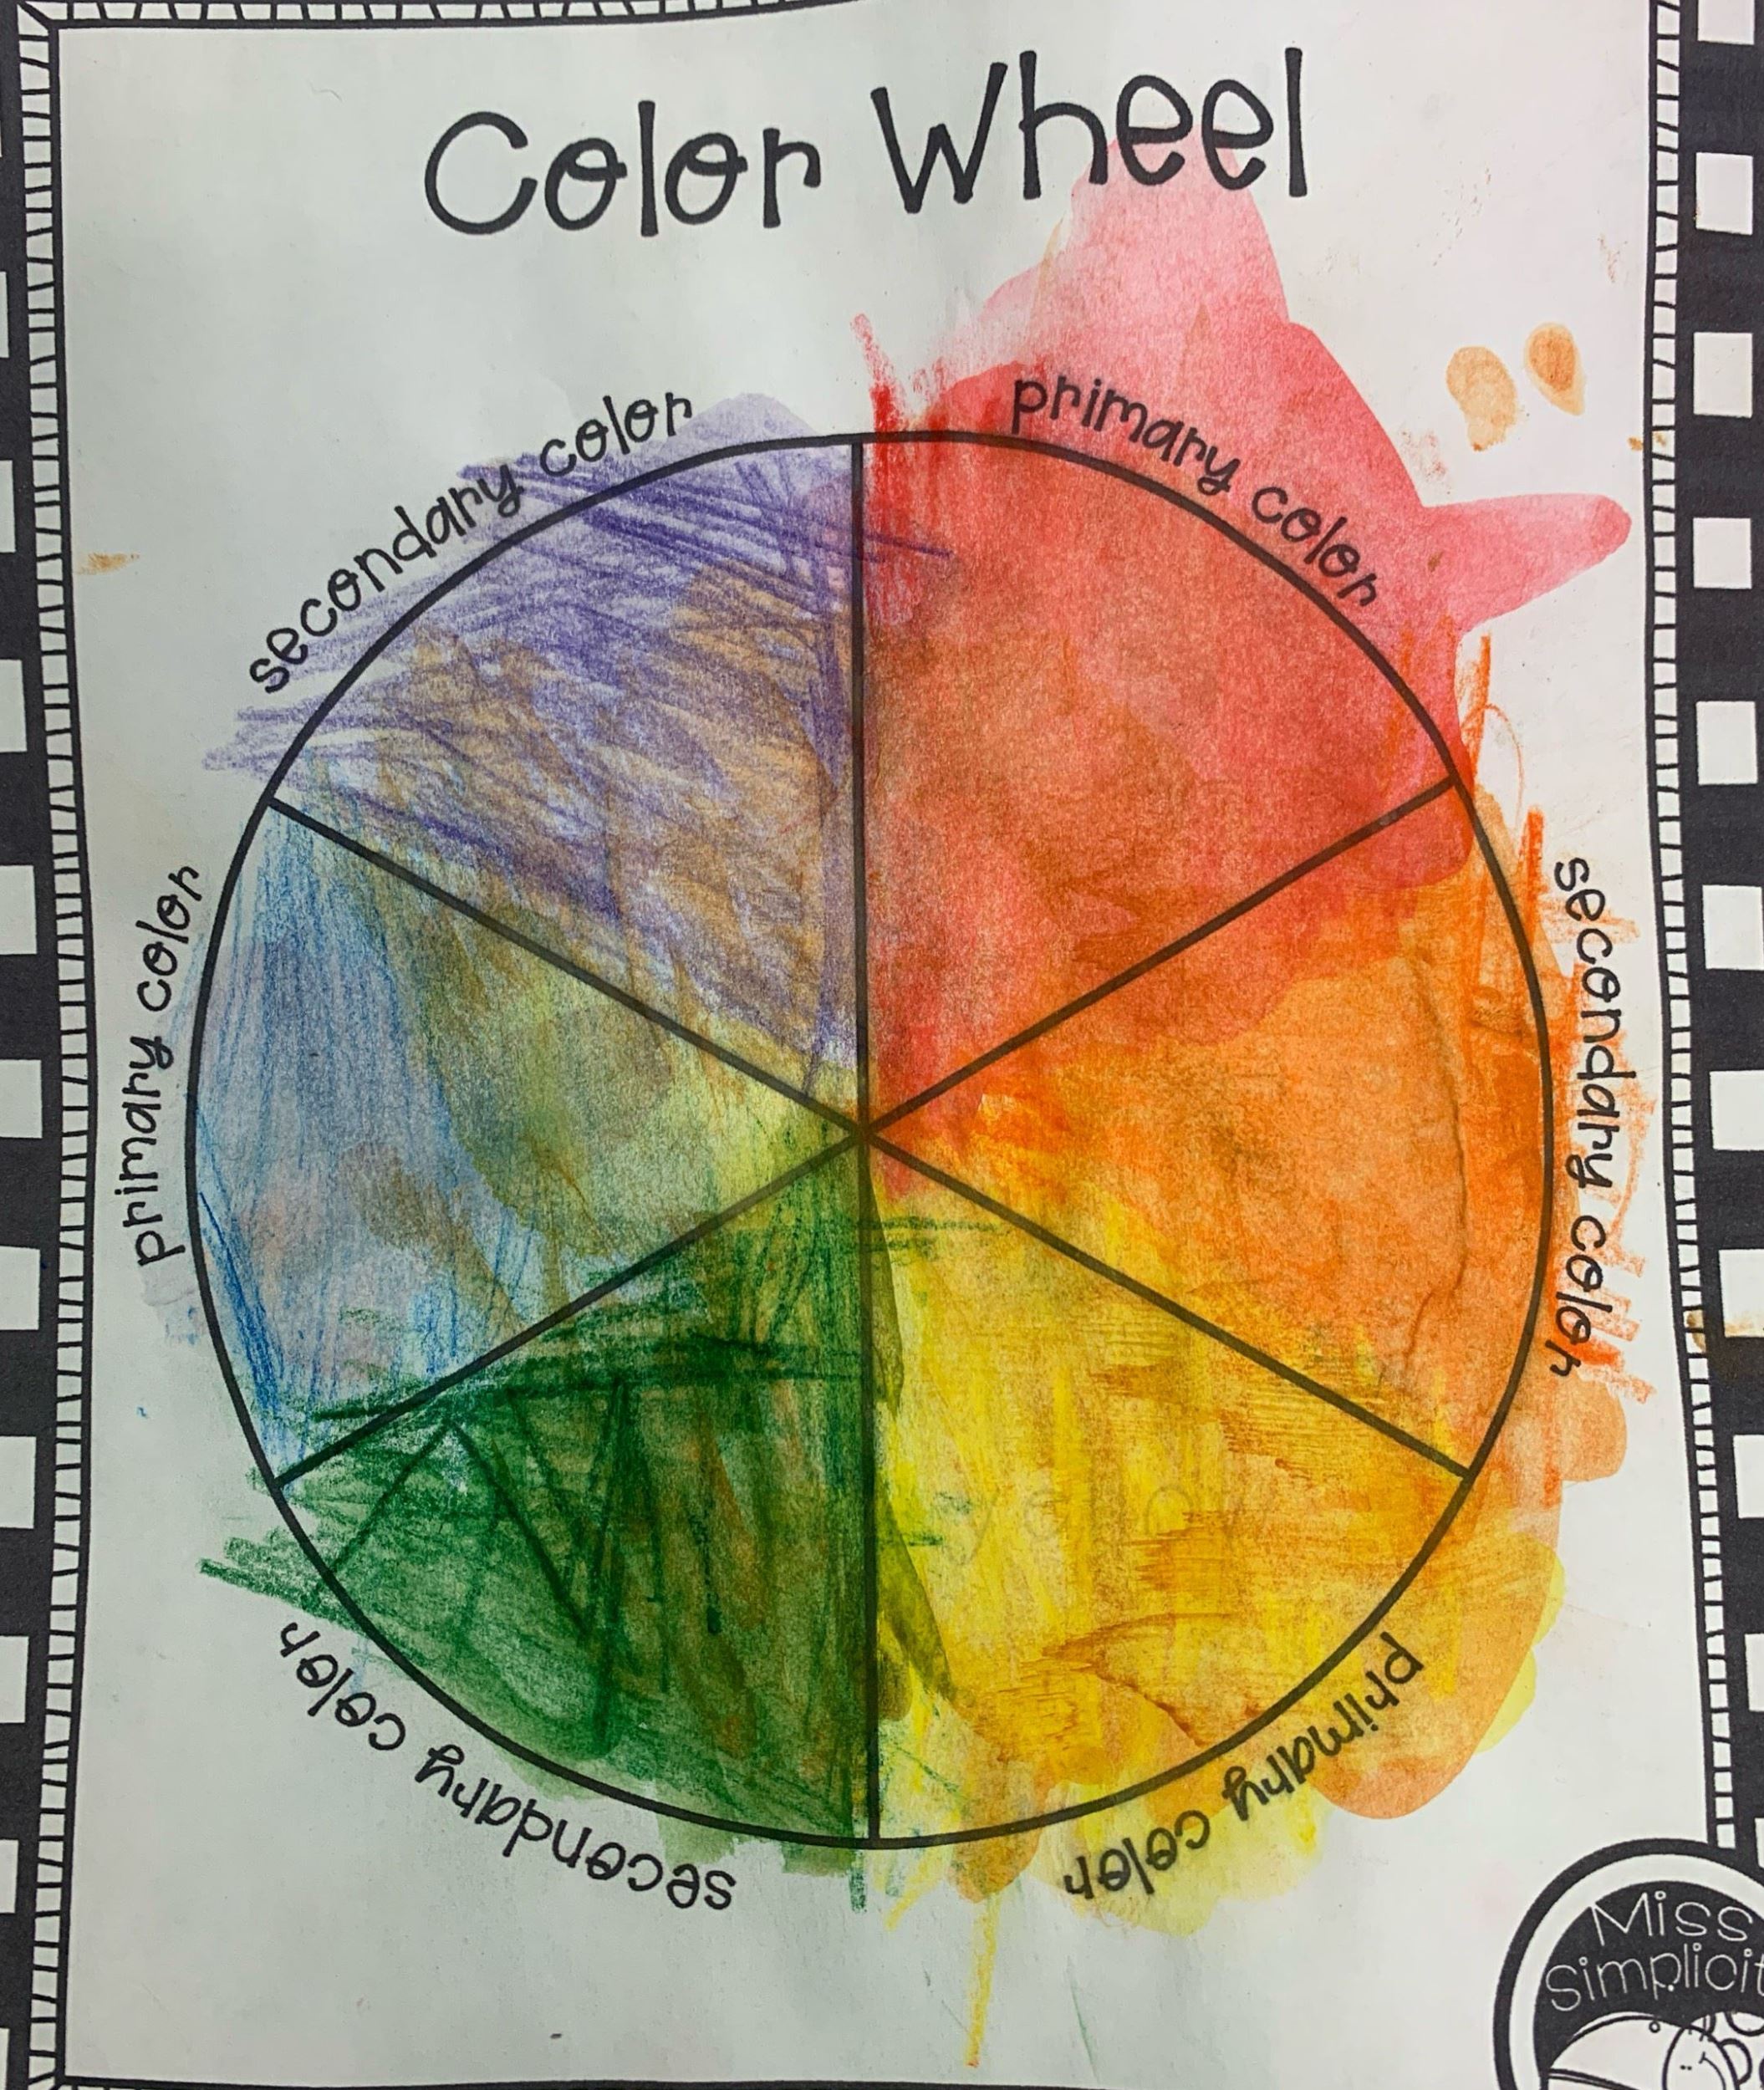 Color Wheel
primary color
secondary color
primary color
secondary color
primary color
secondary color
yellow
Miss